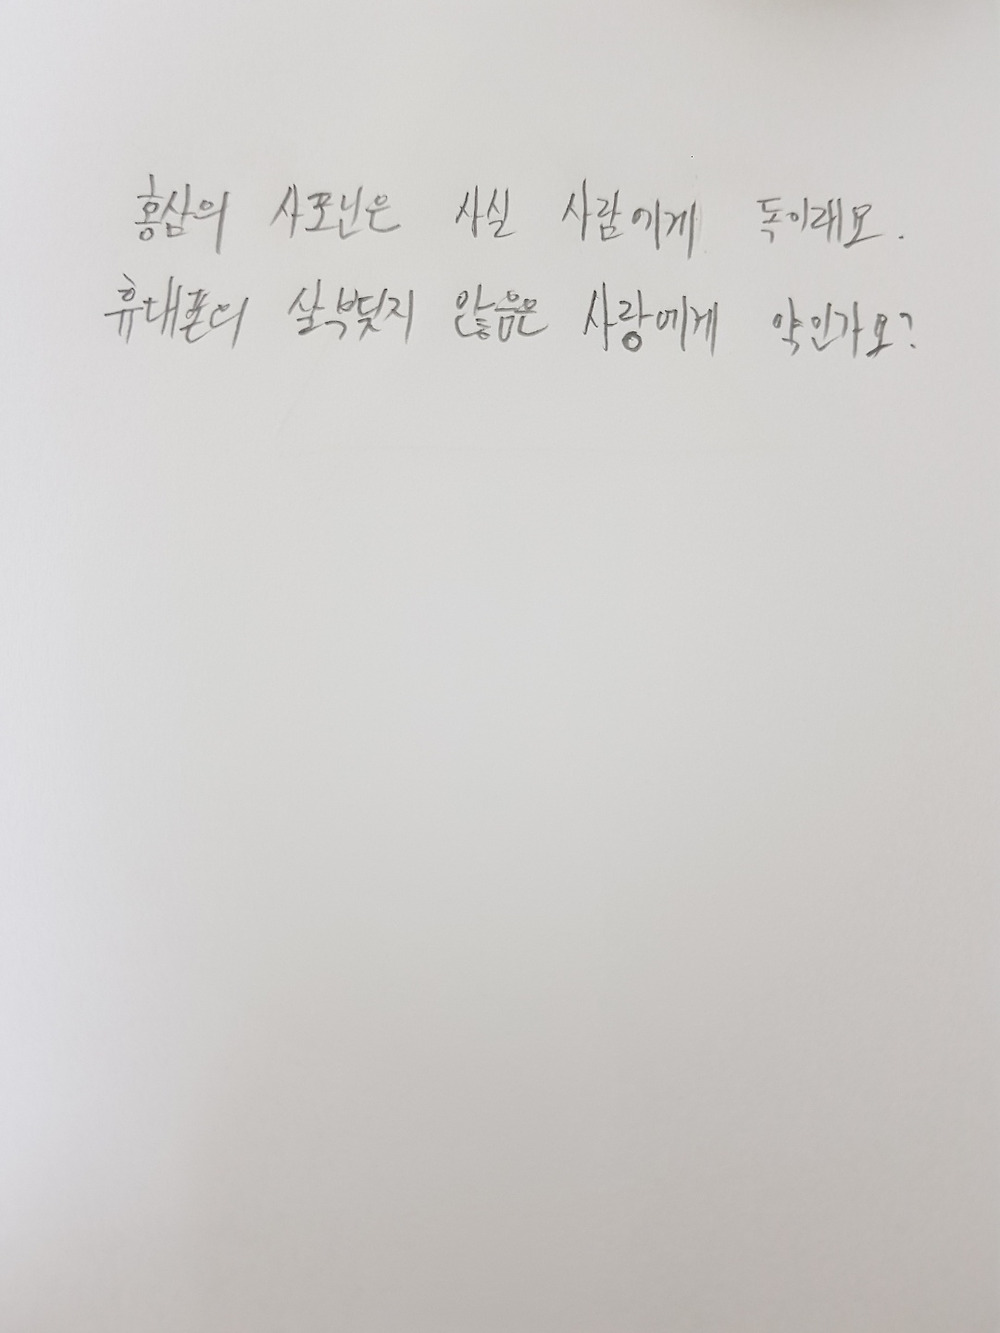 홍삼의 사포닌은 사실 사람에게 독이래요.
휴대폰의 살부빛지 않음은 사랑에게 약인가요?